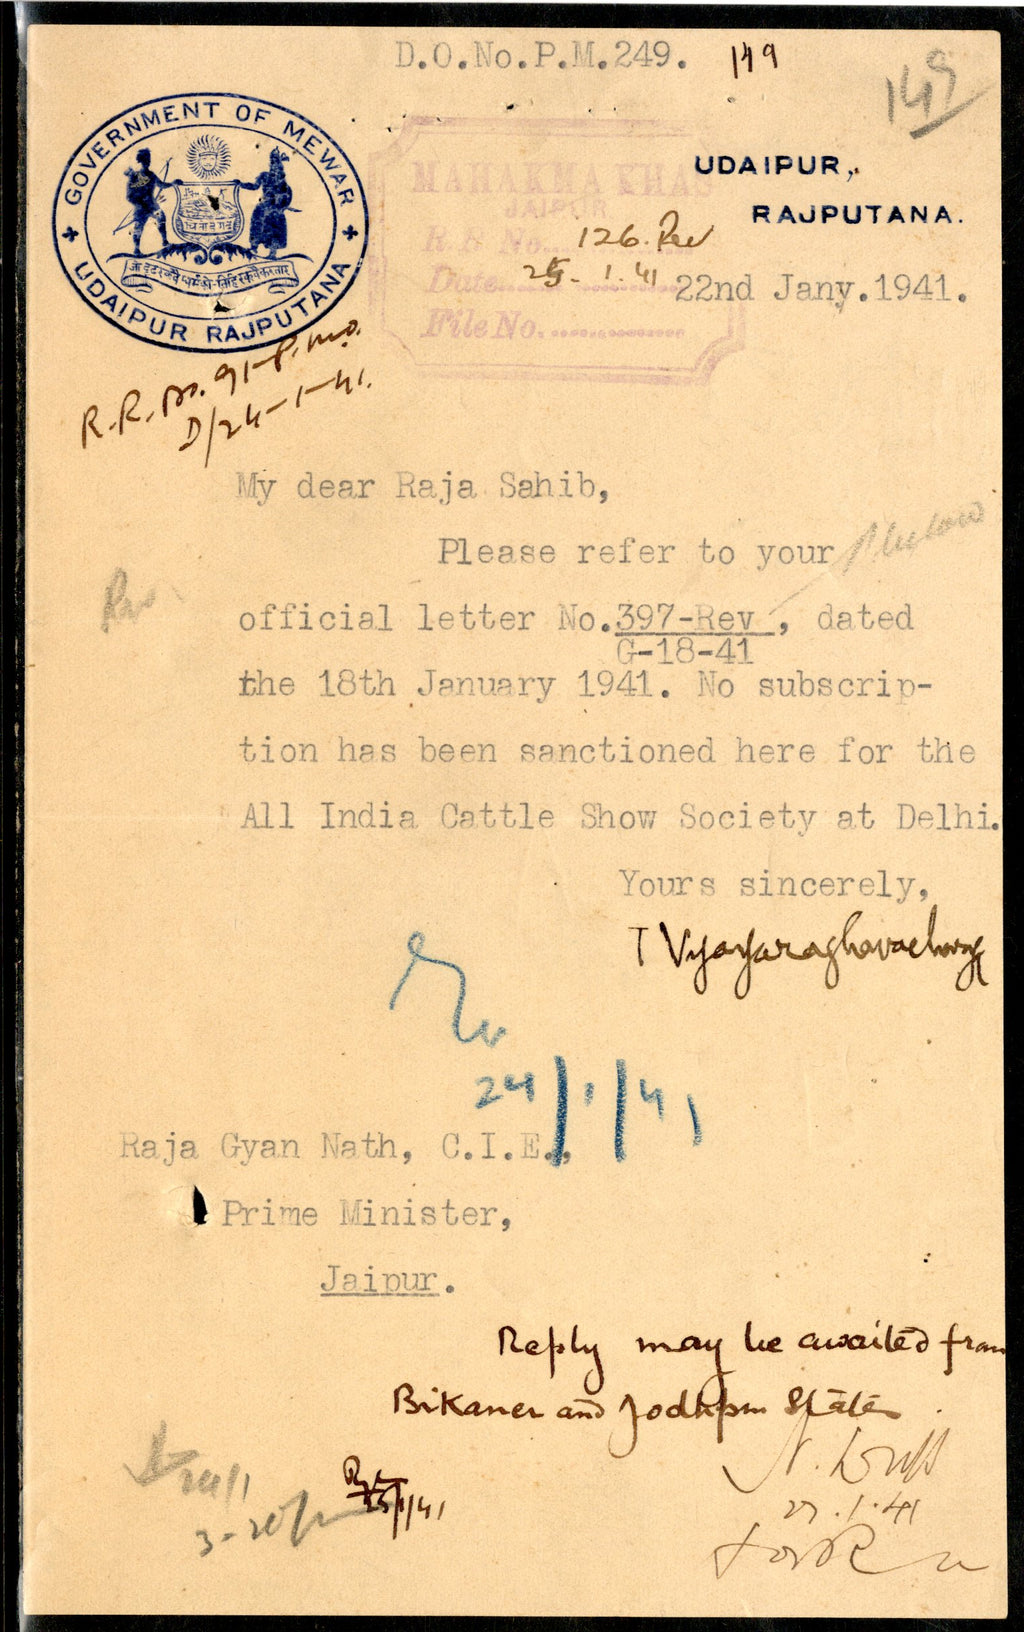 D.O.No.P.M.249. 149
149
GOVERNMENT OF MEWAR
UDAIPUR RAJPUTANA
UDAIPUR,
RAJPUTANA.
MAHAKMA KHAS
JAIPUR
R. D No. 126. Rev
Date 25-1.41
File No.
22nd Jany.1941.
R.R. No. 91-P.M.O.
D/24-1-41.
My dear Raja Sahib,
Please refer to your
Rev
official letter No.397-Rev, dated
G-18-41
the 18th January 1941. No subscrip-
tion has been sanctioned here for the
All India Cattle Show Society at Delhi.
Yours sincerely,
T Vijayaraghavacharya
24/1/41
Raja Gyan Nath, C.I.E.,
Prime Minister,
Jaipur.
Reply may be awaited from
Bikaner and Jodhpur States.
24/1
25/1/41
27.1.41